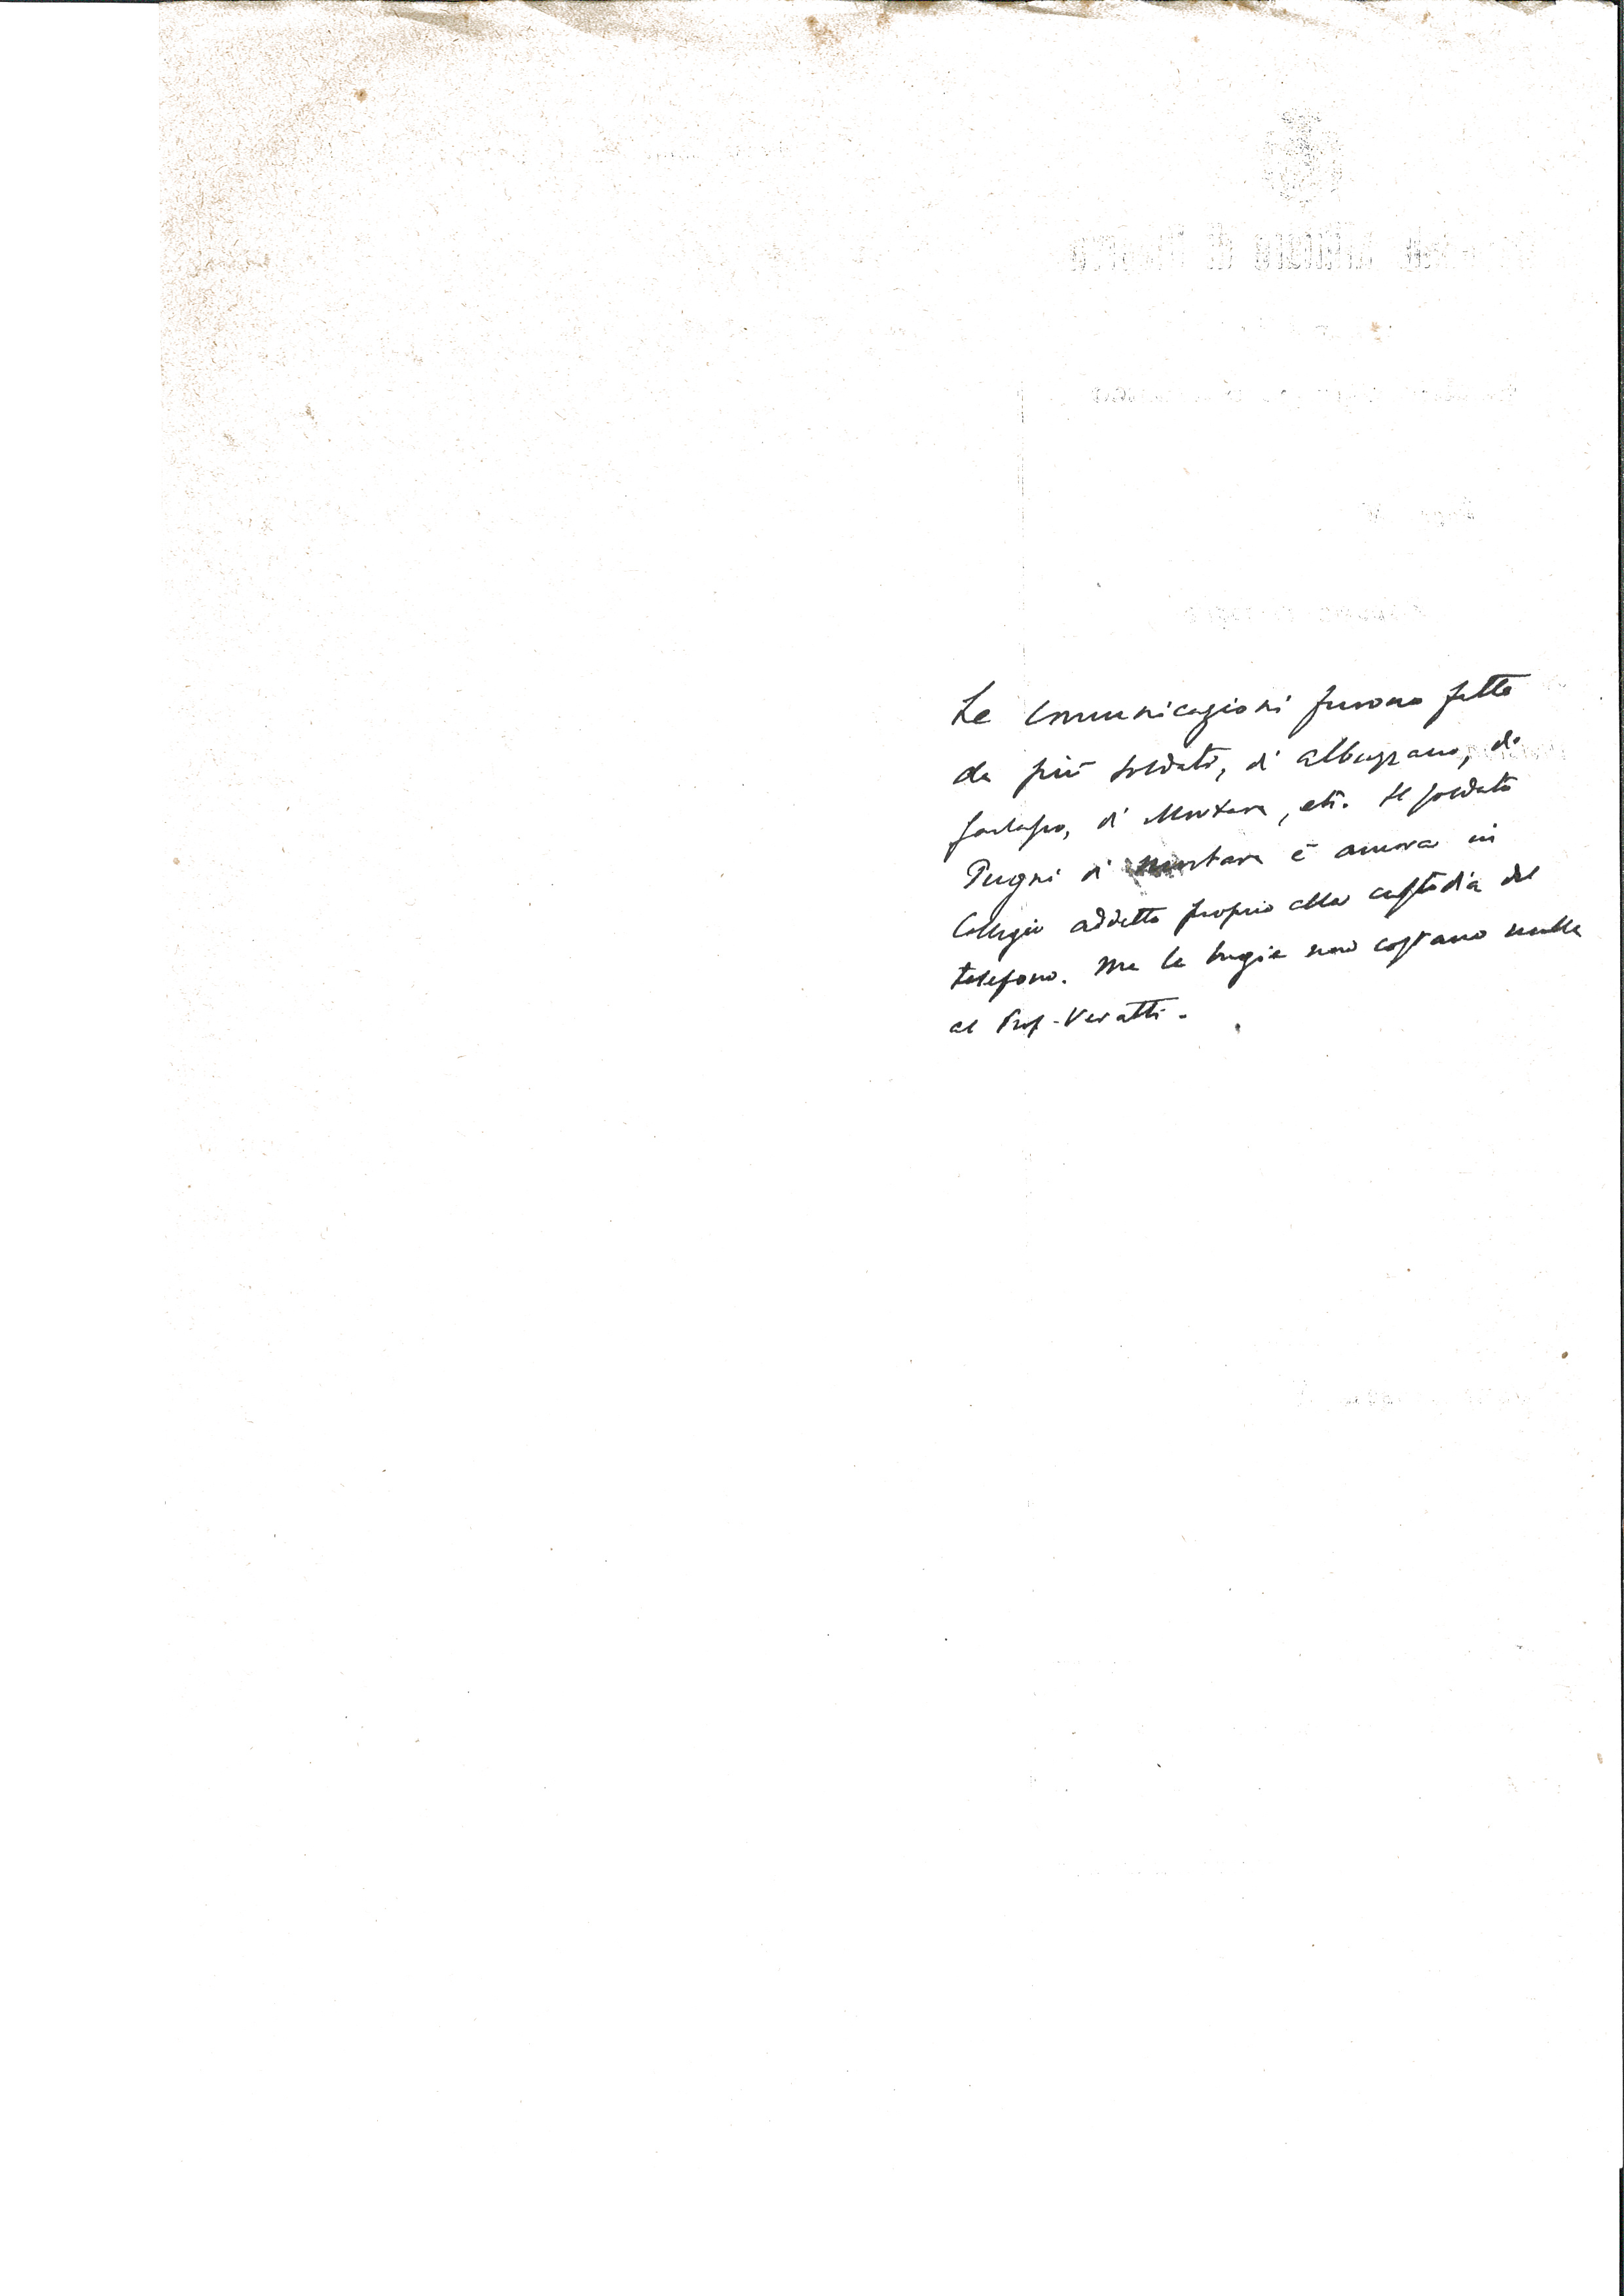 Le comunicazioni furono fatte
da più soldati, di Albuzzano, di
di Mortara, etc. Il soldato
Pugni di Mortara è ancora in
Collegio addetto proprio alla custodia del
telefono. Ma le bugie non costano nulla
al Prof. Veratti.